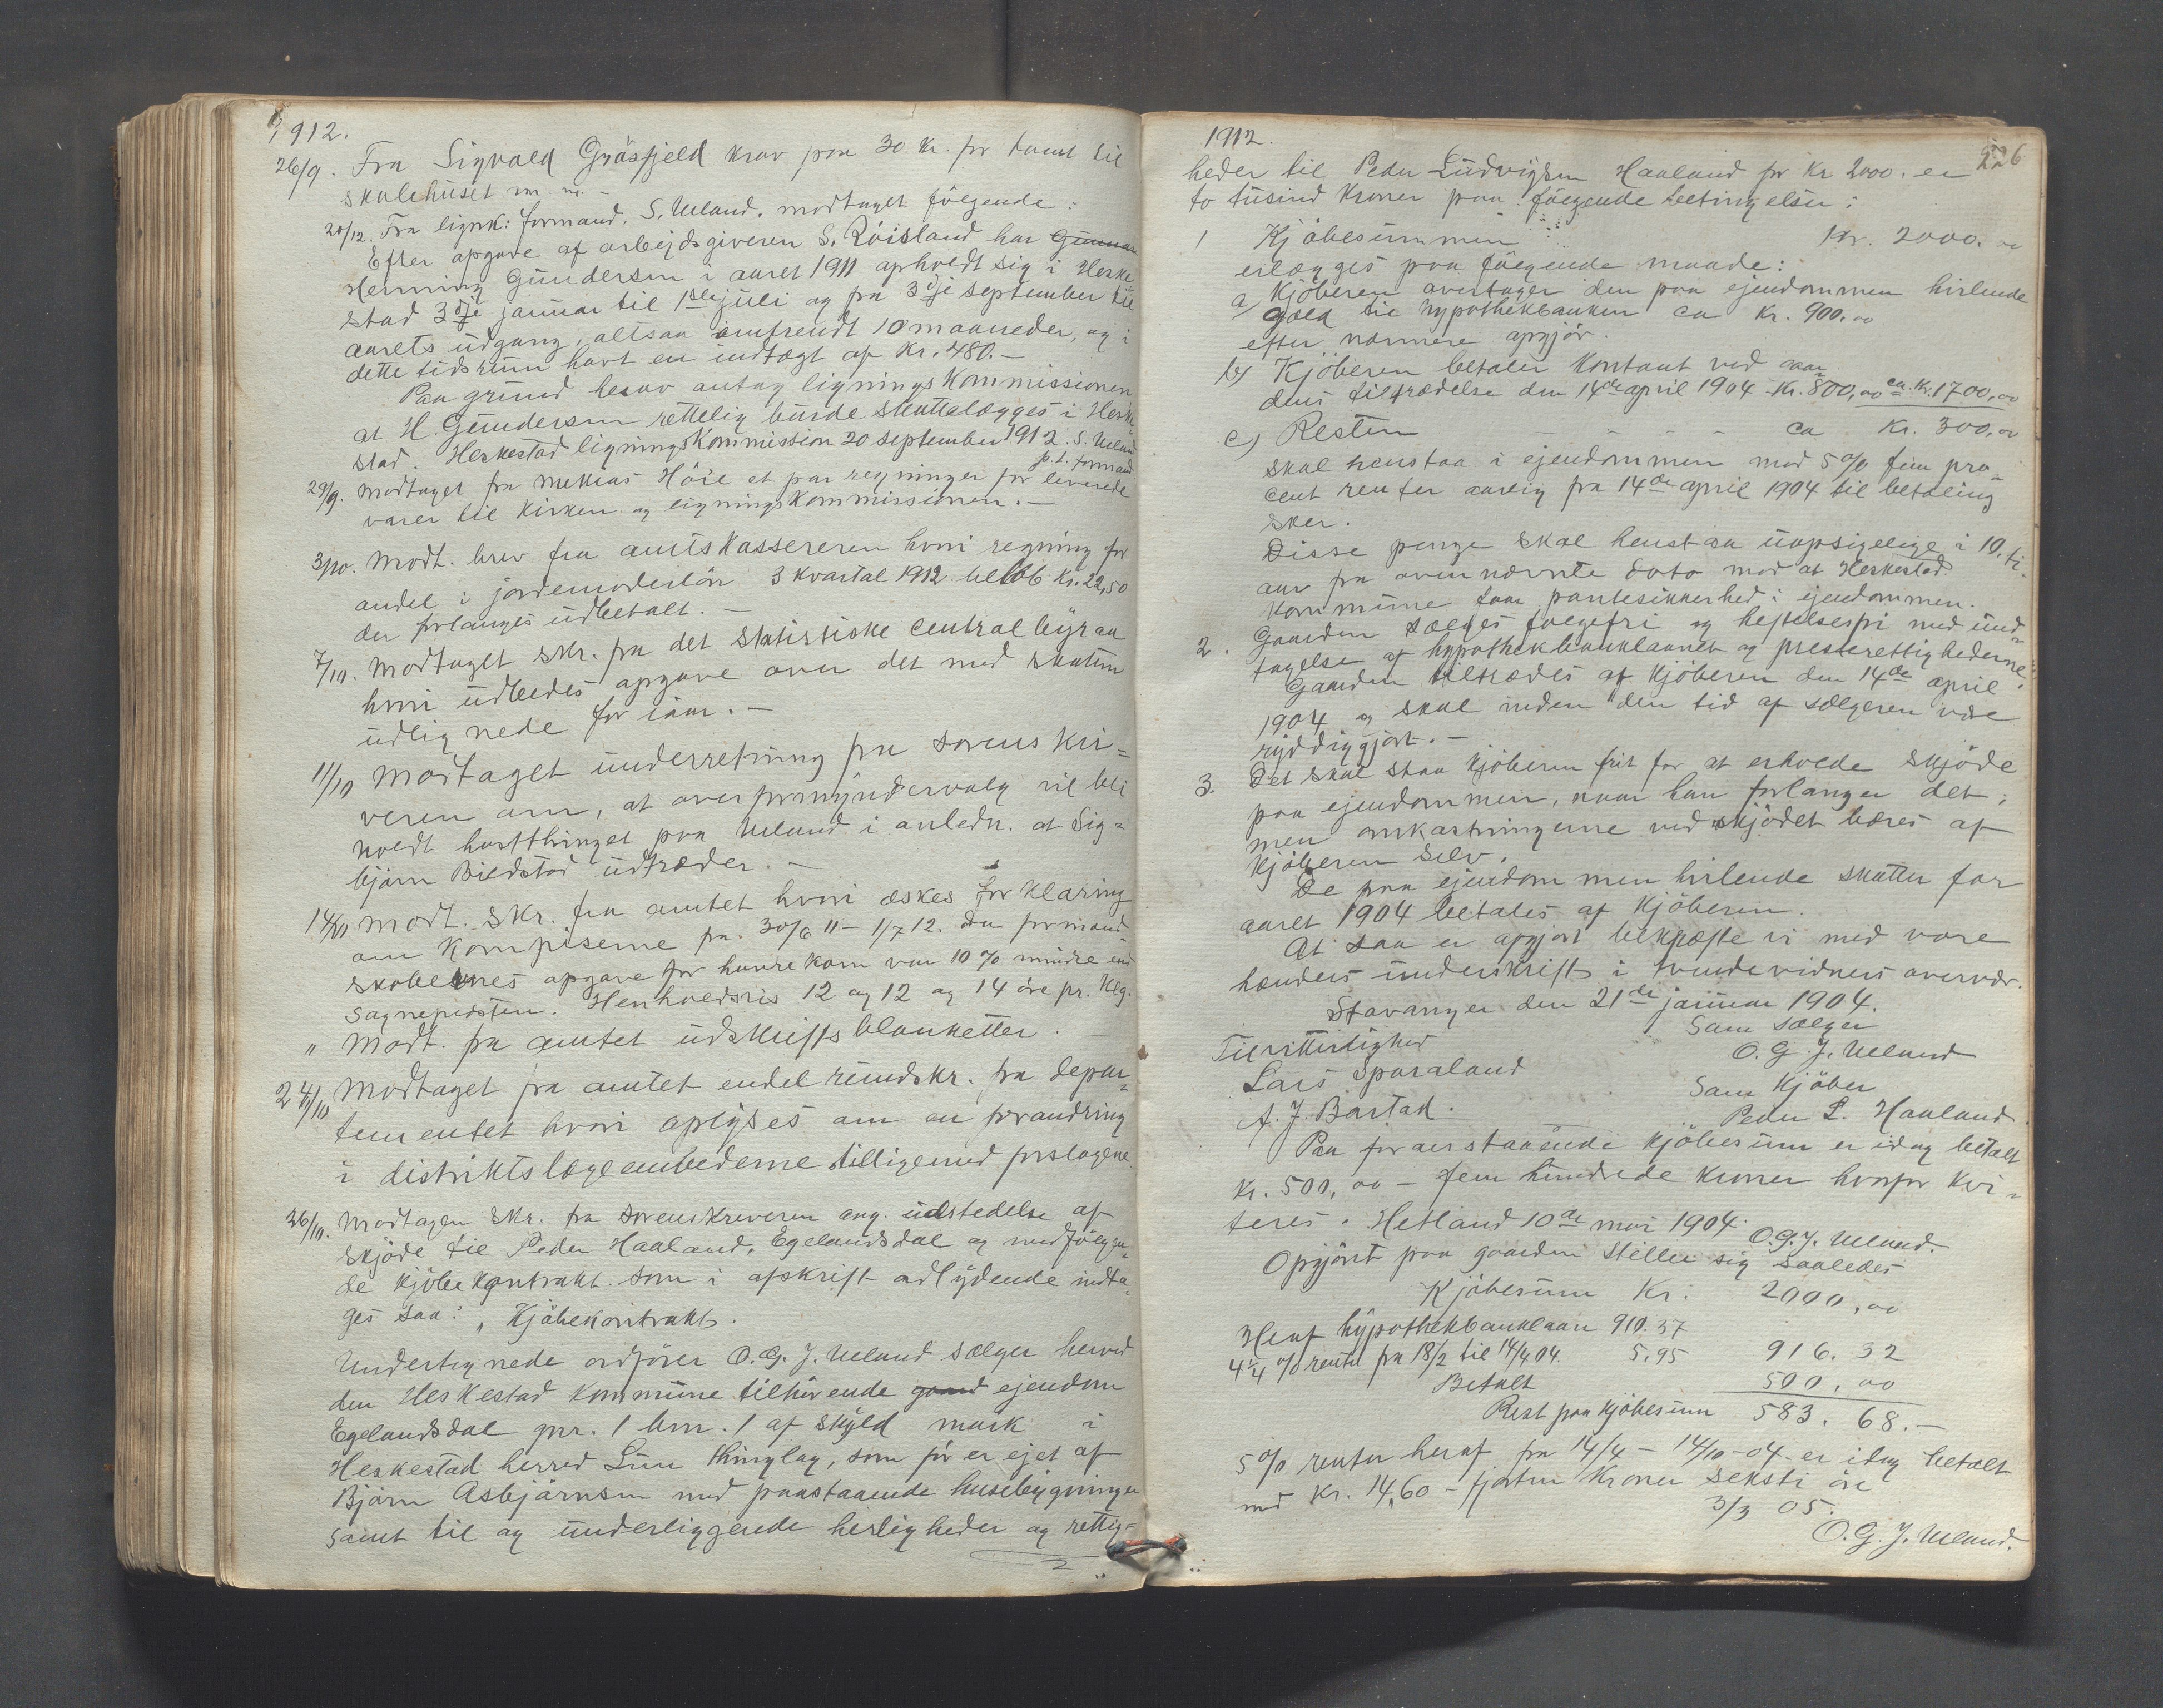 1912.
26/9. Fra Sigvald Gråsfjeld krav paa 30 kr. for tomt til
skulehuset m. m. -
20/12. Fra lignk: formand, S. Ueland, modtaget følgende:
Efter opgave af arbejdsgiveren S. Röisland har Gunnar
Henning Gundersen i aaret 1911 opholdt sig i Heske-
stad 3dje januar til 1ste juli og fra 3dje september til
aarets udgang, altsaa omtrendt 10 maaneder, og i
dette tidsrum havt en indtægt af Kr. 480. -
Paa grund herav antog ligningskommissionen
at H. Gundersen rettelig burde skattelægges i Heske-
stad. Heskestad ligningskommission 20 september 1912. S. Ueland
p. t. formand
29/9. Modtaget fra Mekias Höie et par regninger for leverede
varer til kirken og ligningskommissionen. -
3/10. Modt. brev fra amtskassereren hvori regning for
andel i jordemoderlön 3 kvartal 1912 beløb Kr. 22,50
der forlanges udbetalt. -
7/10. Modtaget skr. fra det statistiske centralbyraa
hvori udbedes opgave over det med skatten
udlignede for iaar. -
11/10 Modtaget underretning fra sorenskri=
veren om, at overformyndervalg vil bli
holdt høstthinget paa Ueland i anledn. at Sig=
björn Bildstad udtræder. -
14/10 Modt. skr. fra amtet hvori æskes forklaring
om kornpriserne fra 30/6 11 - 1/7 12. Da formand-
skabernes opgave for havrekorn var 10 % mindre end
sognepresten. Henholdsvis 12 og 12 og 14 öre pr. klg.
" Modt. fra amtet udskriftsblanketter. -
24/10 Modtaget fra amtet endel rundskr. fra depar=
tementet hvori oplyses om en forandring
i distriktslægeembederne tilligemed forslagene.
26/10. Modtagen skr. fra sorenskriveren ang. udstedelse af
skjøde til Peder Haaland, Egelandsdal og medfölgen-
de kjöbekontrakt som i afskrift adlydende indta-
ges saa: „Kjöbekontrakt.
Undertegnede ordförer O. G. J. Ueland sælger herved
den Heskestad kommune tilhörende gaard ejendom
Egelandsdal gnr. 1 brn. 1 af skyld mark i
Heskestad herred Lun thinglag, som för er ejet af
Björn Asbjörnsen med paastaaende husebygninger
samt til og underliggende herligheder og rettig=
1912.
226
heder til Peder Ludvigsen Haaland for Kr 2000. er
to tusind kroner paa følgende betingelser:
1 Kjöbesummen Kr. 2000.00
erlægges paa følgende maade:
a) Kjöberen overtager den paa ejendommen hvilende
gæld til hypothekbanken ca Kr. 900,00
efter nærmere opgjör.
b) Kjöberen betaler kontant ved gaar-
dens tiltrædelse den 14de april 1904 - Kr. 800,00 = ca. Kr. 1700,00
c) Resten - - - - ca Kr. 300,00
skal henstaa i ejendommen mod 5 % fem pro-
cent renter aarlig fra 14de april 1904 til betaling
sker.
Disse penge skal henstaa uopsigelige i 10, ti
aar fra ovennævnte dato mod at Heskestad
kommune faar pantesikkerhed i ejendommen.
2. Gaarden sælges folgefri og heftelsesfri med und-
tagelse af hypothekbanklaanet og presterettighederne.
Gaarden tiltrædes af kjöberen den 14de april
1904 og skal inden den tid af sælgeren være
ryddiggjort. -
3. Det skal staa kjöberen frit for at erholde skjöde
paa ejendommen, naar han forlanger det;
men omkostningerne ved skjödet bæres af
kjöberen selv.
De paa ejendommen hvilende skatter for
aaret 1904 betales af kjöberen.
At saa er afgjort bekræfte vi med vore
hænders underskrift i tvende vidners overvær.
Stavanger den 21de januar 1904.
Som sælger
O. G. J. Ueland
Til vitterlighed
Lars Sparaland
A. J. Barstad.
Som Kjöber
Peder L. Haaland
Paa foranstaaende kjöbesum er idag betalt
Kr. 500,00 - fem hundrede kroner hvorfor kvi-
teres. Hetland 10de mai 1904. O. G. J. Ueland.
Opgjöret paa gaarden stiller sig saaledes
Kjöbesum Kr. 2000,00
Heraf hypothekbanklaan 910.37
4¼ % renter fra 18/2 til 14/4 04. 5.95 916.32
Betalt 500,00
Rest paa kjöbesum 583.68. -
5 % renter heraf fra 14/4 - 14/10 - 04 er idag betalt
med Kr. 14,60 - fjorten kroner seksti öre
3/3 05.
O. G. J. Ueland.